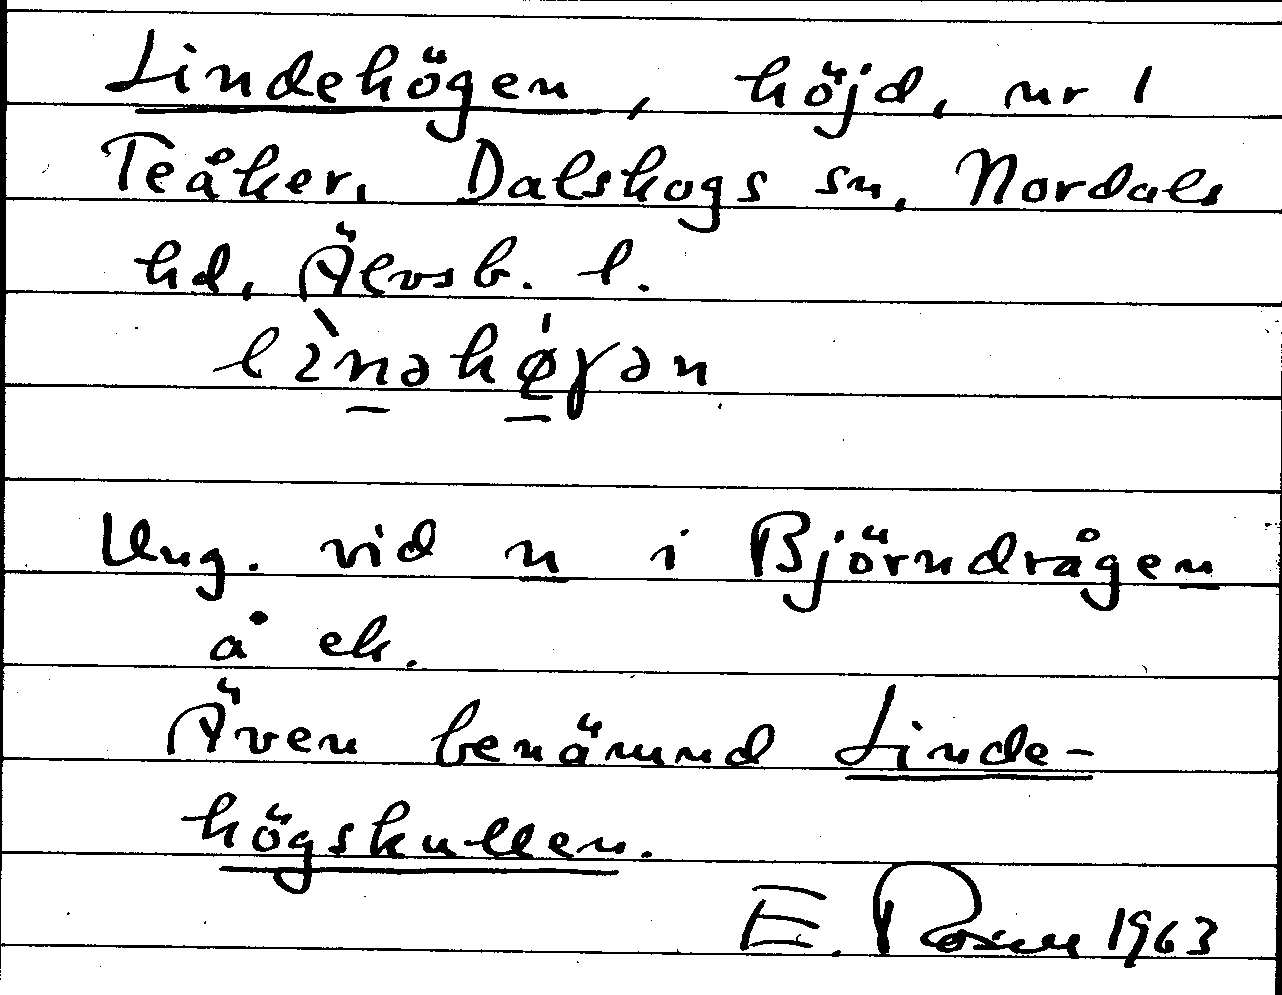 Lindehögen, höjd, nr 1
Teåker, Dalskogs sn, Nordals
hd, Älvsb. l.
lìnəhǿ̱γən
Ung. vid n i Björndrågen
å ek.
Även benämnd Linde-
högskullen.
E. Rosell 1963